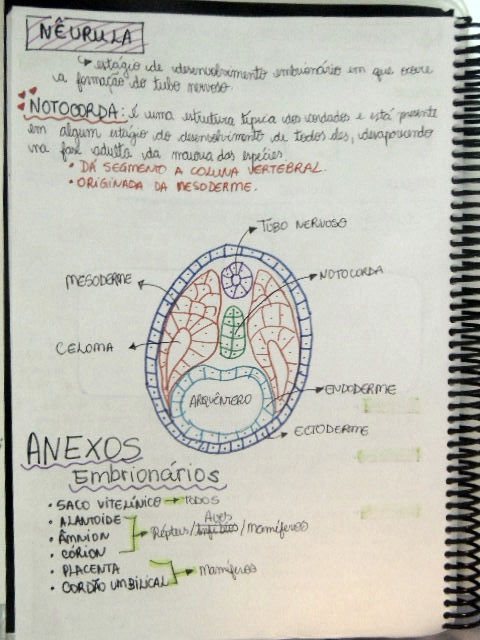 NÊURULA
↳ estágio de desenvolvimento embrionário em que ocorre
a formação do tubo nervoso
NOTOCORDA: É uma estrutura típica dos cordados e está presente
em algum estágio do desenvolvimento de todos eles, desaparecendo
na fase adulta da maioria das espécies
• DÁ SEGMENTO A COLUNA VERTEBRAL.
• ORIGINADA DA MESODERME.
TUBO NERVOSO
MESODERME
NOTOCORDA
CELOMA
ARQUÊNTERO
ENDODERME
ECTODERME
ANEXOS
Embrionários
• SACO VITELÍNICO → TODOS
• ALANTOIDE
• ÂMNION
• CÓRION
Aves
Répteis/ /Mamíferos
• PLACENTA
• CORDÃO UMBILICAL
Mamíferos